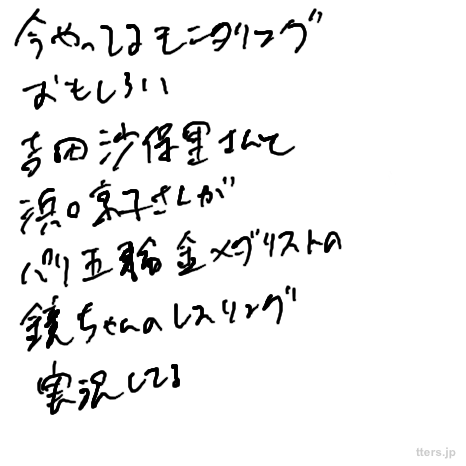 今やってるモニタリング
おもしろい
吉田沙保里さんて
浜口京子さんが
パリ五輪金メダリストの
鏡ちゃんのレスリング
実況してる
tters.jp